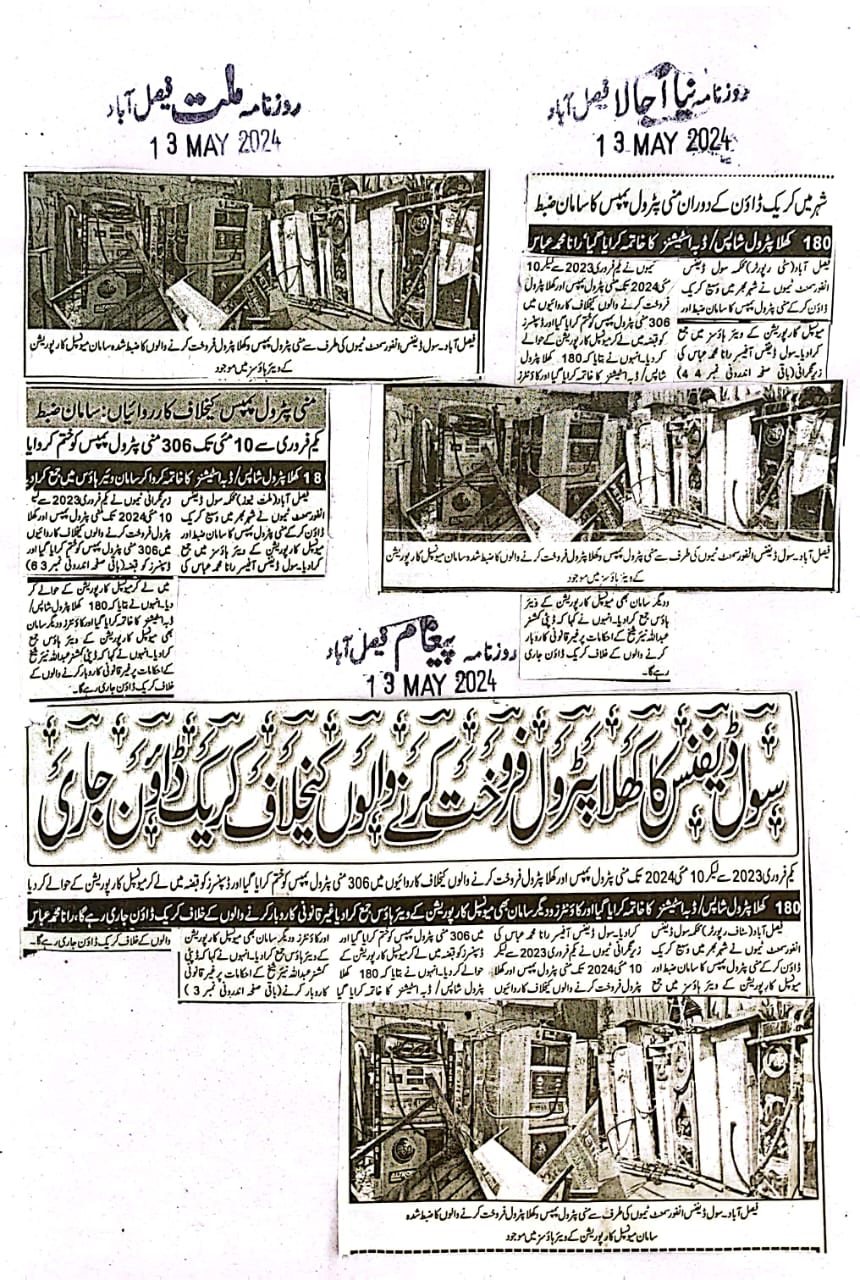 روزنامہ نیا اجالا فیصل آباد
13 MAY 2024
شہر میں کریک ڈاؤن کے دوران منی پٹرول پمپس کا سامان ضبط
180 کھلا پٹرول شاپس/ ڈبہ اسٹیشنز کا خاتمہ کرایا گیا، رانا محمد عباس
فیصل آباد (سٹی رپورٹر) محکمہ سول ڈیفنس
انفورسمنٹ ٹیموں نے شہر بھر میں وسیع کریک
ڈاؤن کرکے منی پٹرول پمپس کا سامان ضبط اور
میونسپل کارپوریشن کے ویئر ہاؤسز میں جمع
کرادیا۔ سول ڈیفنس آفیسر رانا محمد عباس کی
زیرنگرانی (باقی صفحہ اندرونی نمبر 44)
ٹیموں نے یکم فروری 2023 سے لیکر 10
مئی 2024 تک منی پٹرول پمپس اور کھلا پٹرول
فروخت کرنے والوں کیخلاف کارروائیوں میں
306 منی پٹرول پمپس کو ختم کرایا گیا اور ڈسپنسرز
کو قبضہ میں لے کر میونسپل کارپوریشن کے حوالے
کر دیا۔ انہوں نے بتایا کہ 180 کھلا پٹرول
شاپس/ ڈبہ اسٹیشنز کا خاتمہ کرایا گیا اور کاؤنٹرز
ودیگر سامان بھی میونسپل کارپوریشن کے ویئر
ہاؤس جمع کرادیا۔ انہوں نے کہا کہ ڈپٹی کمشنر
عبداللہ نیئر شیخ کے احکامات پر غیر قانونی کاروبار
کرنے والوں کے خلاف کریک ڈاؤن جاری
رہے گا۔
فیصل آباد۔ سول ڈیفنس انفورسمنٹ ٹیموں کی طرف سے منی پٹرول پمپس و کھلا پٹرول فروخت کرنے والوں کا ضبط شدہ سامان میونسپل کارپوریشن
کے ویئر ہاؤسز میں موجود
روزنامہ ملت فیصل آباد
13 MAY 2024
فیصل آباد۔ سول ڈیفنس انفورسمنٹ ٹیموں کی طرف سے منی پٹرول پمپس و کھلا پٹرول فروخت کرنے والوں کا ضبط شدہ سامان میونسپل کارپوریشن
کے ویئر ہاؤسز میں موجود
منی پٹرول پمپس کیخلاف کارروائیاں: سامان ضبط
یکم فروری سے 10 مئی تک 306 منی پٹرول پمپس کو ختم کروایا
18 کھلا پٹرول شاپس/ ڈبہ اسٹیشنز کا خاتمہ کروا کر سامان ویئر ہاؤس میں جمع کرادیا
فیصل آباد (ملت نیوز) محکمہ سول ڈیفنس
انفورسمنٹ ٹیموں نے شہر بھر میں وسیع کریک
ڈاؤن کر کے منی پٹرول پمپس کا سامان ضبط اور
میونسپل کارپوریشن کے ویئر ہاؤسز میں جمع
کرادیا۔ سول ڈیفنس آفیسر رانا محمد عباس کی
زیرنگرانی ٹیموں نے یکم فروری 2023 سے لیکر
10 مئی 2024 تک منی پٹرول پمپس اور کھلا
پٹرول فروخت کرنے والوں کیخلاف کارروائیوں
میں 306 منی پٹرول پمپس کو ختم کرایا گیا اور
ڈسپنسرز کو قبضہ (باقی صفحہ اندرونی نمبر 63)
میں لے کر میونسپل کارپوریشن کے حوالے کر
دیا۔ انہوں نے بتایا کہ 180 کھلا پٹرول شاپس/
ڈبہ اسٹیشنز کا خاتمہ کرایا گیا اور کاؤنٹرز ودیگر سامان
بھی میونسپل کارپوریشن کے ویئر ہاؤس جمع
کرادیا۔ انہوں نے کہا کہ ڈپٹی کمشنر عبداللہ نیئر شیخ
کے احکامات پر غیر قانونی کاروبار کرنے والوں کے
خلاف کریک ڈاؤن جاری رہے گا۔
روزنامہ پیغام فیصل آباد
13 MAY 2024
سول ڈیفنس کا کھلا پٹرول فروخت کرنے والوں کیخلاف کریک ڈاؤن جاری
یکم فروری 2023 سے لیکر 10 مئی 2024 تک منی پٹرول پمپس اور کھلا پٹرول فروخت کرنے والوں کیخلاف کارروائیوں میں 306 منی پٹرول پمپس کو ختم کرایا گیا اور ڈسپنسرز کو قبضہ میں لے کر میونسپل کارپوریشن کے حوالے کر دیا
180 کھلا پٹرول شاپس/ ڈبہ اسٹیشنز کا خاتمہ کرایا گیا اور کاؤنٹرز ودیگر سامان بھی میونسپل کارپوریشن کے ویئر ہاؤس جمع کرادیا غیر قانونی کاروبار کرنے والوں کے خلاف کریک ڈاؤن جاری رہے گا، رانا محمد عباس
فیصل آباد (سٹاف رپورٹر) محکمہ سول ڈیفنس
انفورسمنٹ ٹیموں نے شہر بھر میں وسیع کریک
ڈاؤن کر کے منی پٹرول پمپس کا سامان ضبط اور
میونسپل کارپوریشن کے ویئر ہاؤسز میں جمع
کرادیا۔ سول ڈیفنس آفیسر رانا محمد عباس کی
زیرنگرانی ٹیموں نے یکم فروری 2023 سے لیکر
10 مئی 2024 تک منی پٹرول پمپس اور کھلا
پٹرول فروخت کرنے والوں کیخلاف کارروائیوں
میں 306 منی پٹرول پمپس کو ختم کرایا گیا اور
ڈسپنسرز کو قبضہ میں لے کر میونسپل کارپوریشن کے
حوالے کر دیا۔ انہوں نے بتایا کہ 180 کھلا
پٹرول شاپس/ ڈبہ اسٹیشنز کا خاتمہ کرایا گیا
اور کاؤنٹرز ودیگر سامان بھی میونسپل کارپوریشن
کے ویئر ہاؤس جمع کرادیا۔ انہوں نے کہا کہ ڈپٹی
کمشنر عبداللہ نیئر شیخ کے احکامات پر غیر قانونی
کاروبار کرنے (باقی صفحہ اندرونی نمبر 3)
والوں کے خلاف کریک ڈاؤن جاری رہے گا۔
فیصل آباد۔ سول ڈیفنس انفورسمنٹ ٹیموں کی طرف سے منی پٹرول پمپس و کھلا پٹرول فروخت کرنے والوں کا ضبط شدہ
سامان میونسپل کارپوریشن کے ویئر ہاؤسز میں موجود